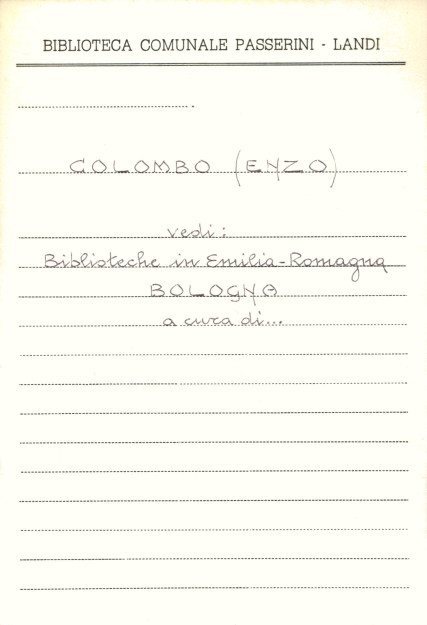 BIBLIOTECA COMUNALE PASSERINI - LANDI
COLOMBO (ENZO)
vedi:
Biblioteche in Emilia-Romagna
BOLOGNA
a cura di...